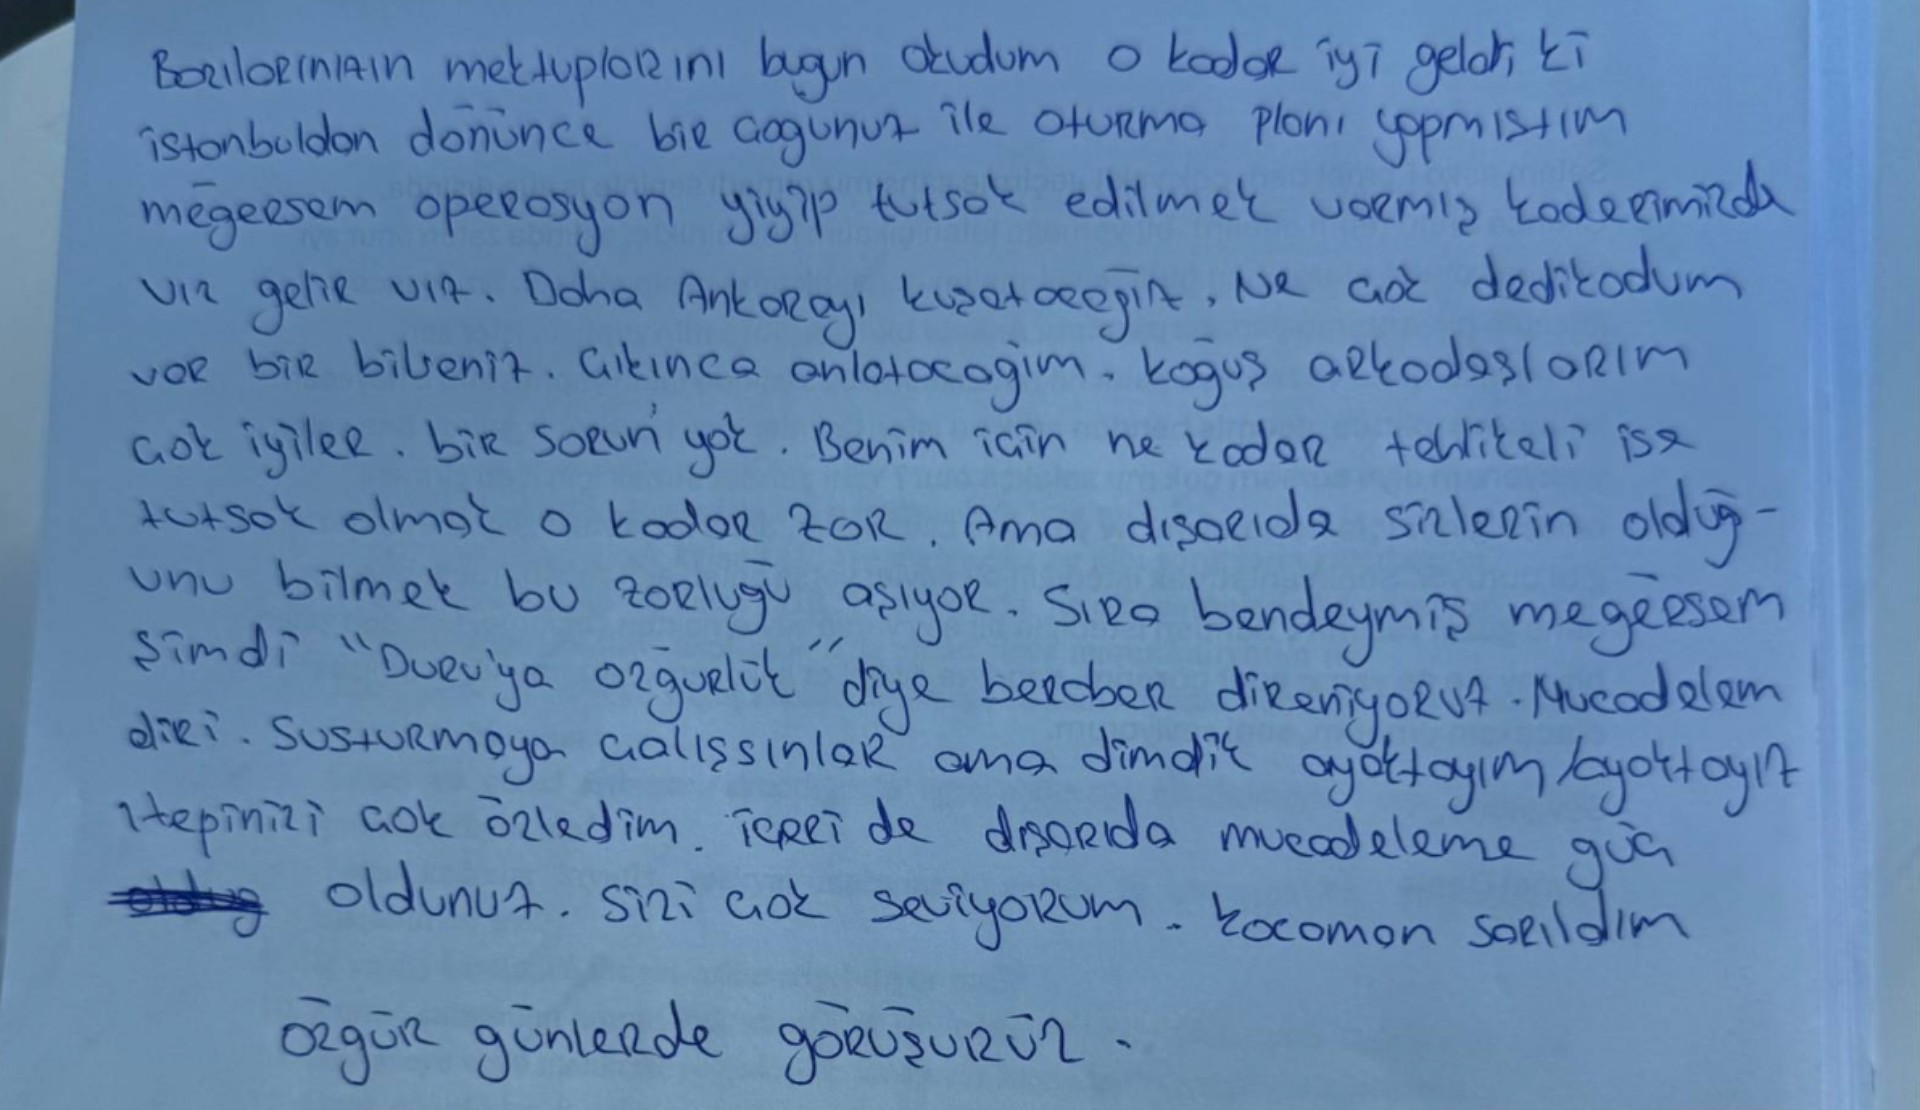 Bazılarınızın mektuplarını bugün okudum o kadar iyi geldi ki
istanbuldan dönünce bir çoğunuz ile oturma planı yapmıştım
meğersem operasyon yiyip tutsak edilmek varmış kaderimizde
vız gelir vız. Daha Ankarayı kuşatacağız. Ne çok dedikodum
var bir bilseniz. Çıkınca anlatacağım. Koğuş arkadaşlarım
çok iyiler. bir sorun yok. Benim için ne kadar tehlikeli ise
tutsak olmak o kadar zor. Ama dışarıda sizlerin olduğ-
unu bilmek bu zorluğu aşıyor. Sıra bendeymiş meğersem
şimdi "Duru'ya özgürlük" diye beraber direniyoruz. Mücadelem
diri. Susturmaya çalışsınlar ama dimdik ayaktayım/ayaktayız
Hepinizi çok özledim. İçeri de dışarıda mücadeleme güç
oldunuz. Sizi çok seviyorum. Kocaman sarıldım
Özgür günlerde görüşürüz.